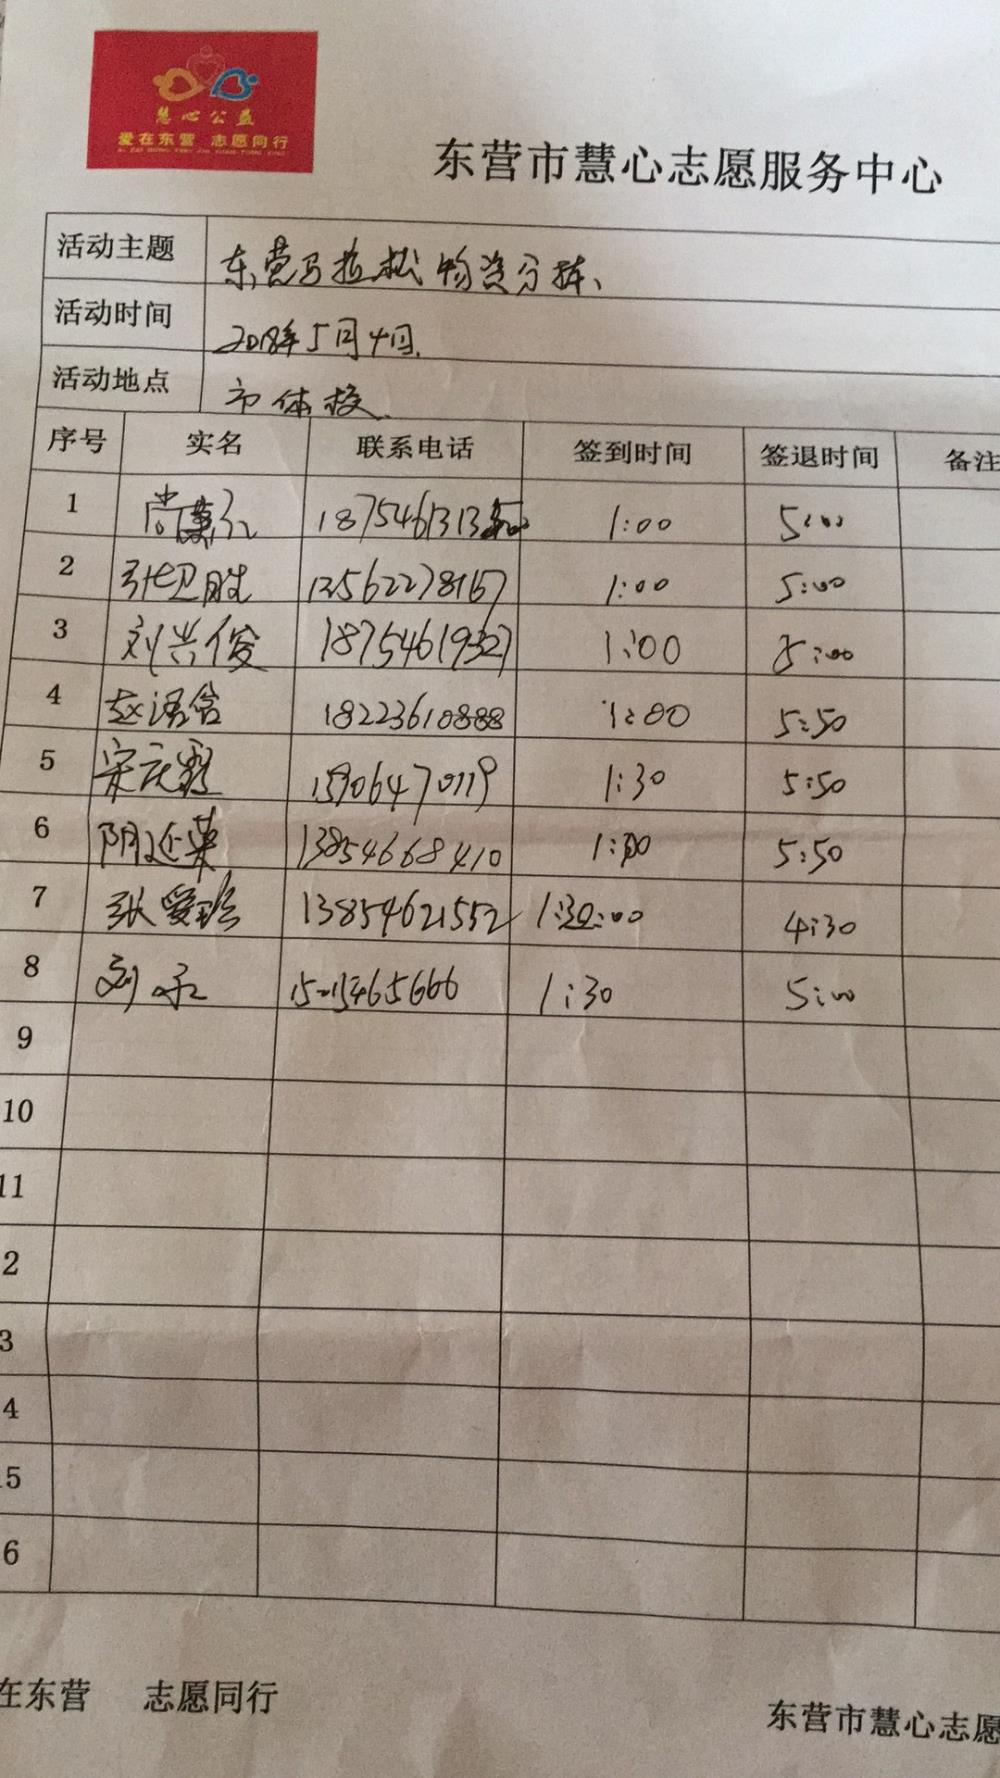 慧心公益
爱在东营 志愿同行
东营市慧心志愿服务中心
活动主题 东营马拉松物资分拣、
活动时间 2018年5月4日.
活动地点 市体校.
序号 实名 联系电话 签到时间 签退时间 备注
1 1:00 5:00
2 张卫胜 13562278167 1:00 5:00
3 刘兴俊 18754619327 1:00 5:00
4 赵语含 18223610888 1:00 5:50
5 15906470119 1:30 5:50
6 阴延荣 13854668410 5:50
7 张爱珍 13854621552 4:30
8 刘 1:30 5:00
9
10
11
2
3
4
5
6
在东营 志愿同行
东营市慧心志愿